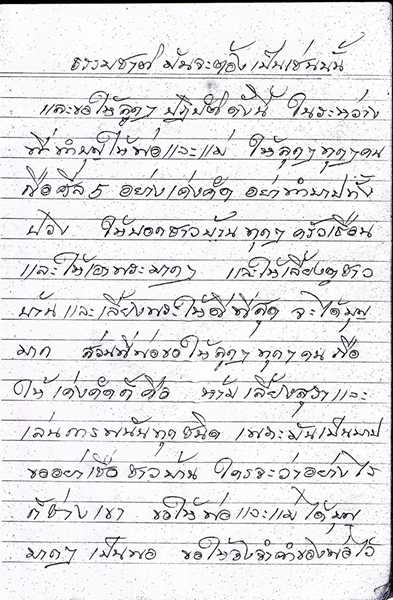 ธรรมชาติ มันจะต้องเป็นเช่นนั้น
และขอให้ลูกๆ ปฏิบัติดังนี้ ในระหว่าง
ที่ทำบุญให้พ่อและแม่ ให้ลูกๆทุกๆคน
ถือศีล 5 อย่างเคร่งคัด อย่าทำบาปทั้ง
ปวง ให้บอกชาวบ้านทุกๆ ครัวเรือน
และให้เอาพระมากๆ และให้เลี้ยงชาว
บ้าน และเลี้ยงพระให้ดีที่สุด จะได้บุญ
มาก ส่วนที่พ่อขอให้ลูกๆ ทุกๆคน ถือ
ให้เคร่งคัดก็คือ ห้ามเลี้ยงสุราและ
เล่นการพนันทุกชนิด เพราะมันเป็นบาป
ขออย่าเชื่อชาวบ้าน ใครจะว่าอย่างไร
ก็ช่างเขา ขอให้พ่อและแม่ได้บุญ
มากๆ เป็นพอ ขอให้จงจำคำของพ่อไว้